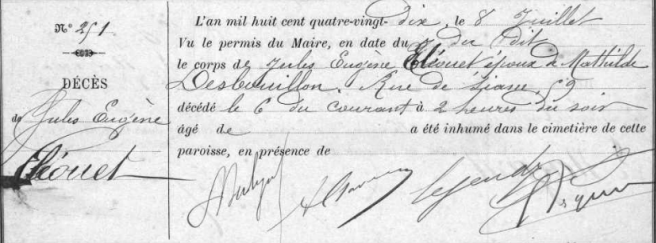 N° 251
DÉCÈS
de Jules Eugène
Eliouet
L'an mil huit cent quatre-vingt-dix, le 8 Juillet
Vu le permis du Maire, en date du 7 du dit
le corps de Jules Eugène Eliouet époux de Mathilde
Desbouillon. Rue de
décédé le 6 du courant à 2 heures du soir
âgé de a été inhumé dans le cimetière de cette
paroisse, en présence de
Legendre